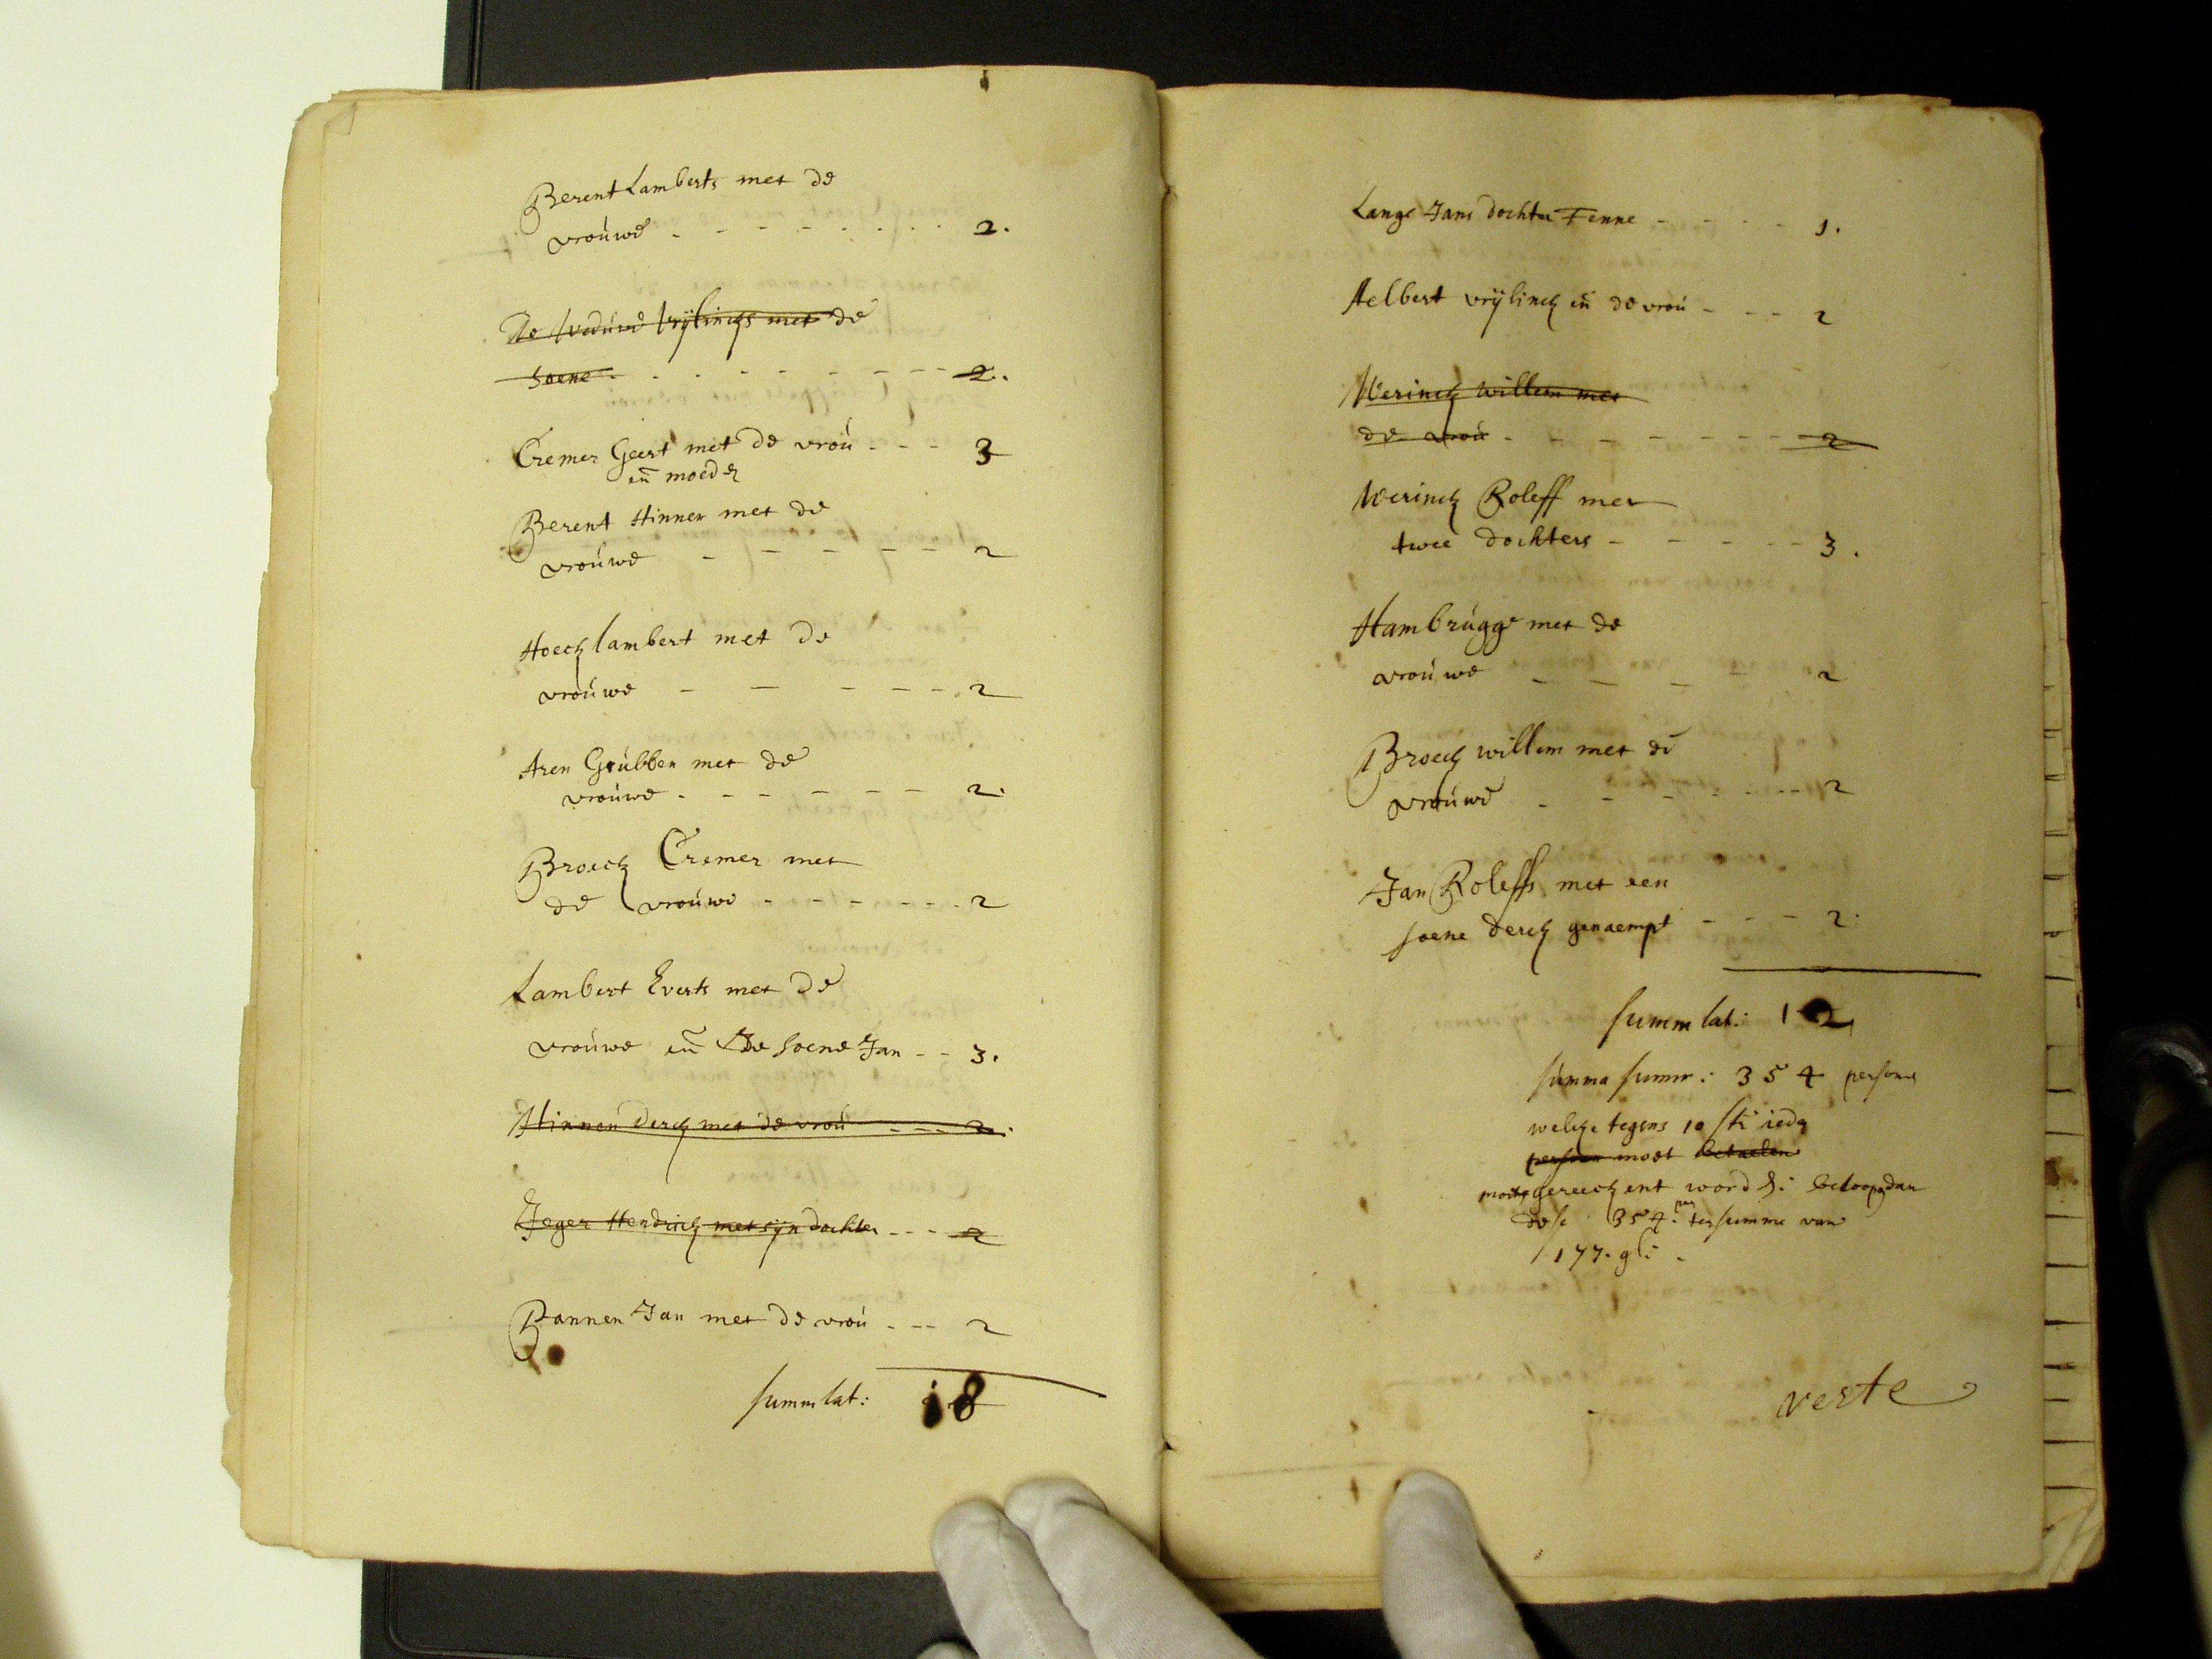 Berent Lamberts met de
vrouwe - - - - - - - - 2.
De weduwe vrijlincks met de
soene - - - - - - - - 2.
Cremer Geert met de vrou - - - 3
en̄ moeder
Berent Hinnen met de
vrouwe - - - - - 2
Hoeck lambert met de
vrouwe - - - - - 2
Aren Grubben met de
vrouwe - - - - - - 2.
Broeck Cremer met
de vrouwe - - - - - - 2
Lambert Everts met de
vrouwe en̄ de soene Jan - - 3.
Hinnen derck met de vrou - - - 2.
Jeger Hendrick met sijn dochter - - - 2
Bannen Jan met de vrou - - - 2
summ lat: 18
Lange Jans dochter Fenne - - - - 1.
Aelbert vrijlinck en̄ de vrou - - - 2
Werinck willem met
de vrou - - - - - - - - 2
Werinck Roleff met
twee dochters - - - - - 3.
Hambrugge met de
vrouwe - - - - 2
Broeck willem met de
vrouwe - - - - - - 2
Jan Roleffs met een
soene derck genaempt - - - 2.
summ lat: 12
summa summ: 354 persone
welcke tegens 10 st: ieder
persoon moet betaelen
moeten gereeckent worden: beloopen dan
dese 354: per ter summe van
177. gl: -
verte